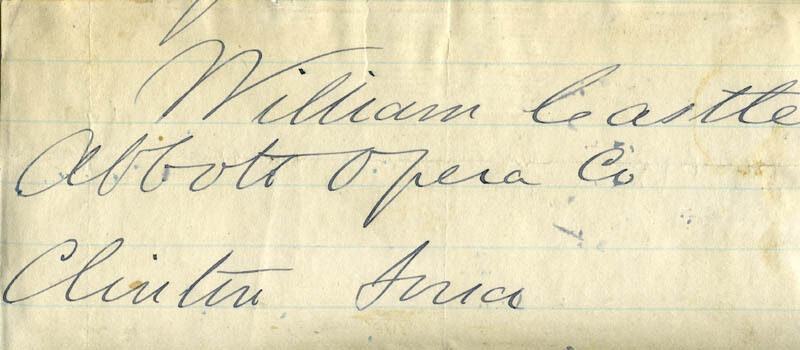 William Castle
Abbott Opera Co
Clinton Iowa